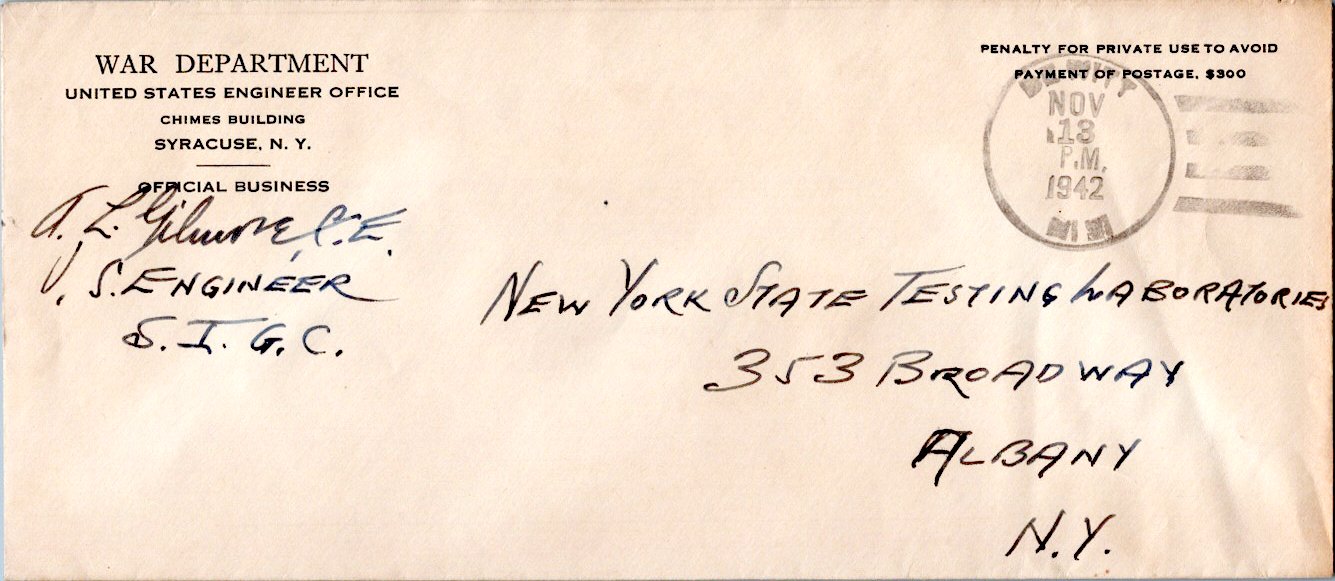 WAR DEPARTMENT
UNITED STATES ENGINEER OFFICE
CHIMES BUILDING
SYRACUSE, N. Y.
OFFICIAL BUSINESS
A. L. Gilmore, C.E.
S. ENGINEER
S. I. G. C.
PENALTY FOR PRIVATE USE TO AVOID
PAYMENT OF POSTAGE, $300
DE WITT
NOV
13
P.M.
1942
NEW YORK STATE TESTING LABORATORIES
353 BROADWAY
ALBANY
N.Y.